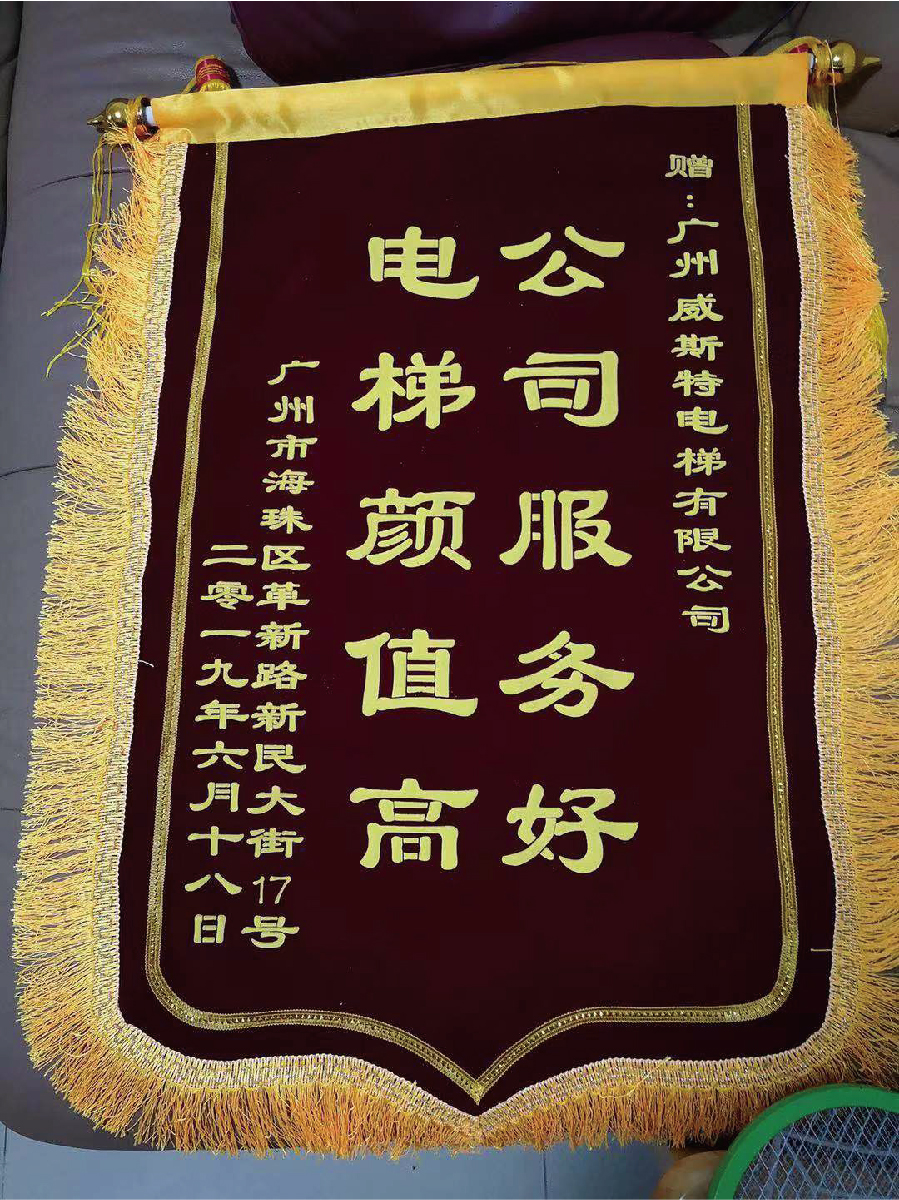 赠：广州威斯特电梯有限公司
公司服务好
电梯颜值高
广州市海珠区革新路新民大街17号
二零一九年六月十八日